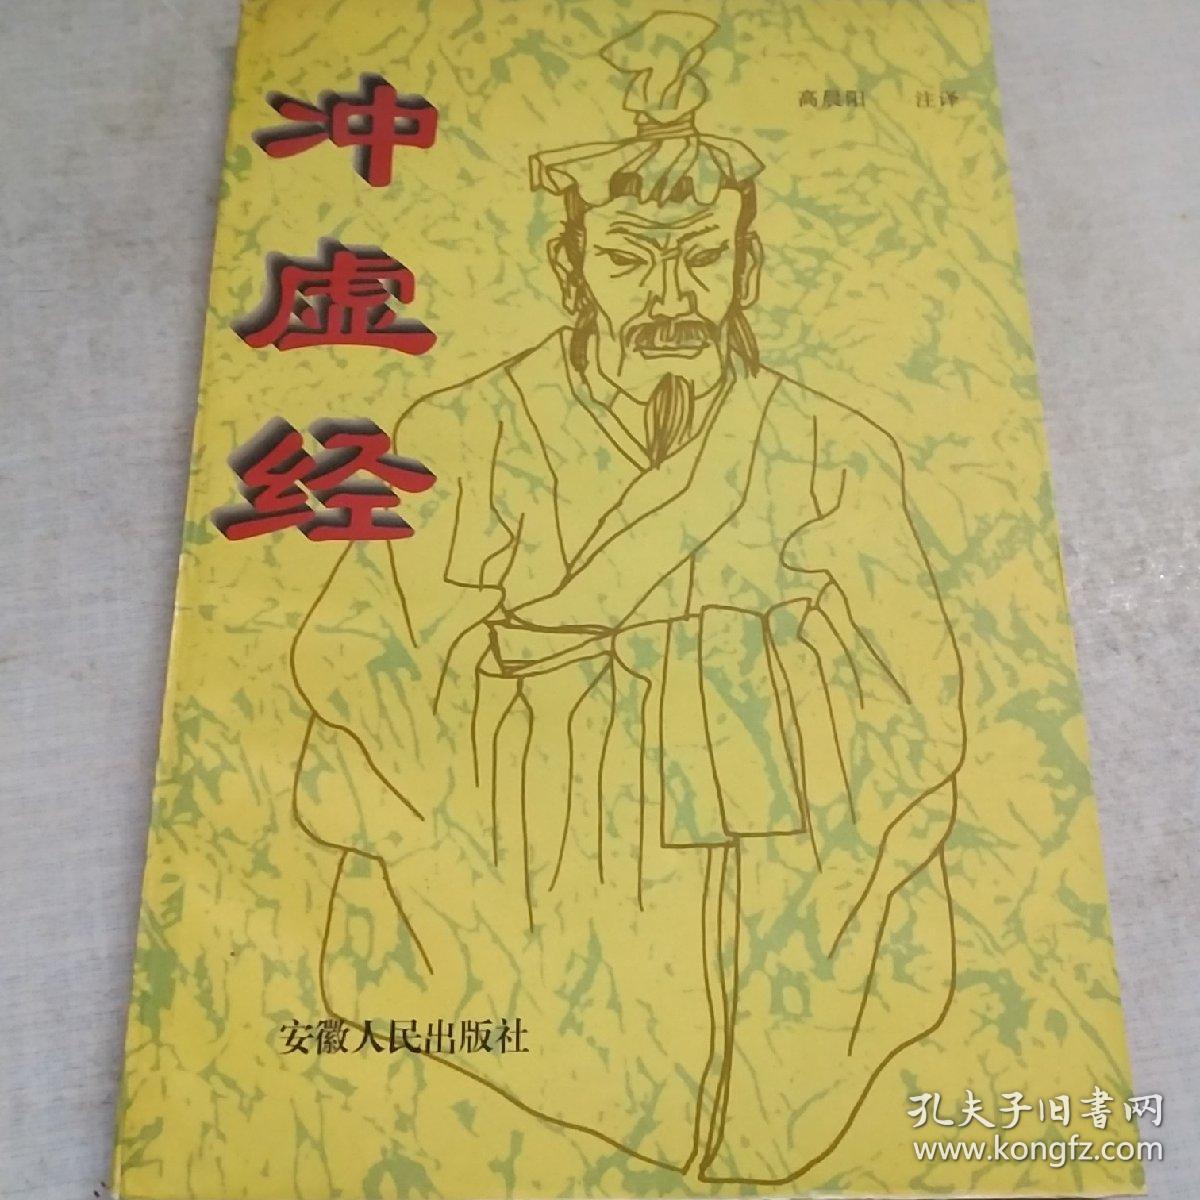 冲虚经
高晨阳 注译
安徽人民出版社
孔夫子旧書网
www.kongfz.com